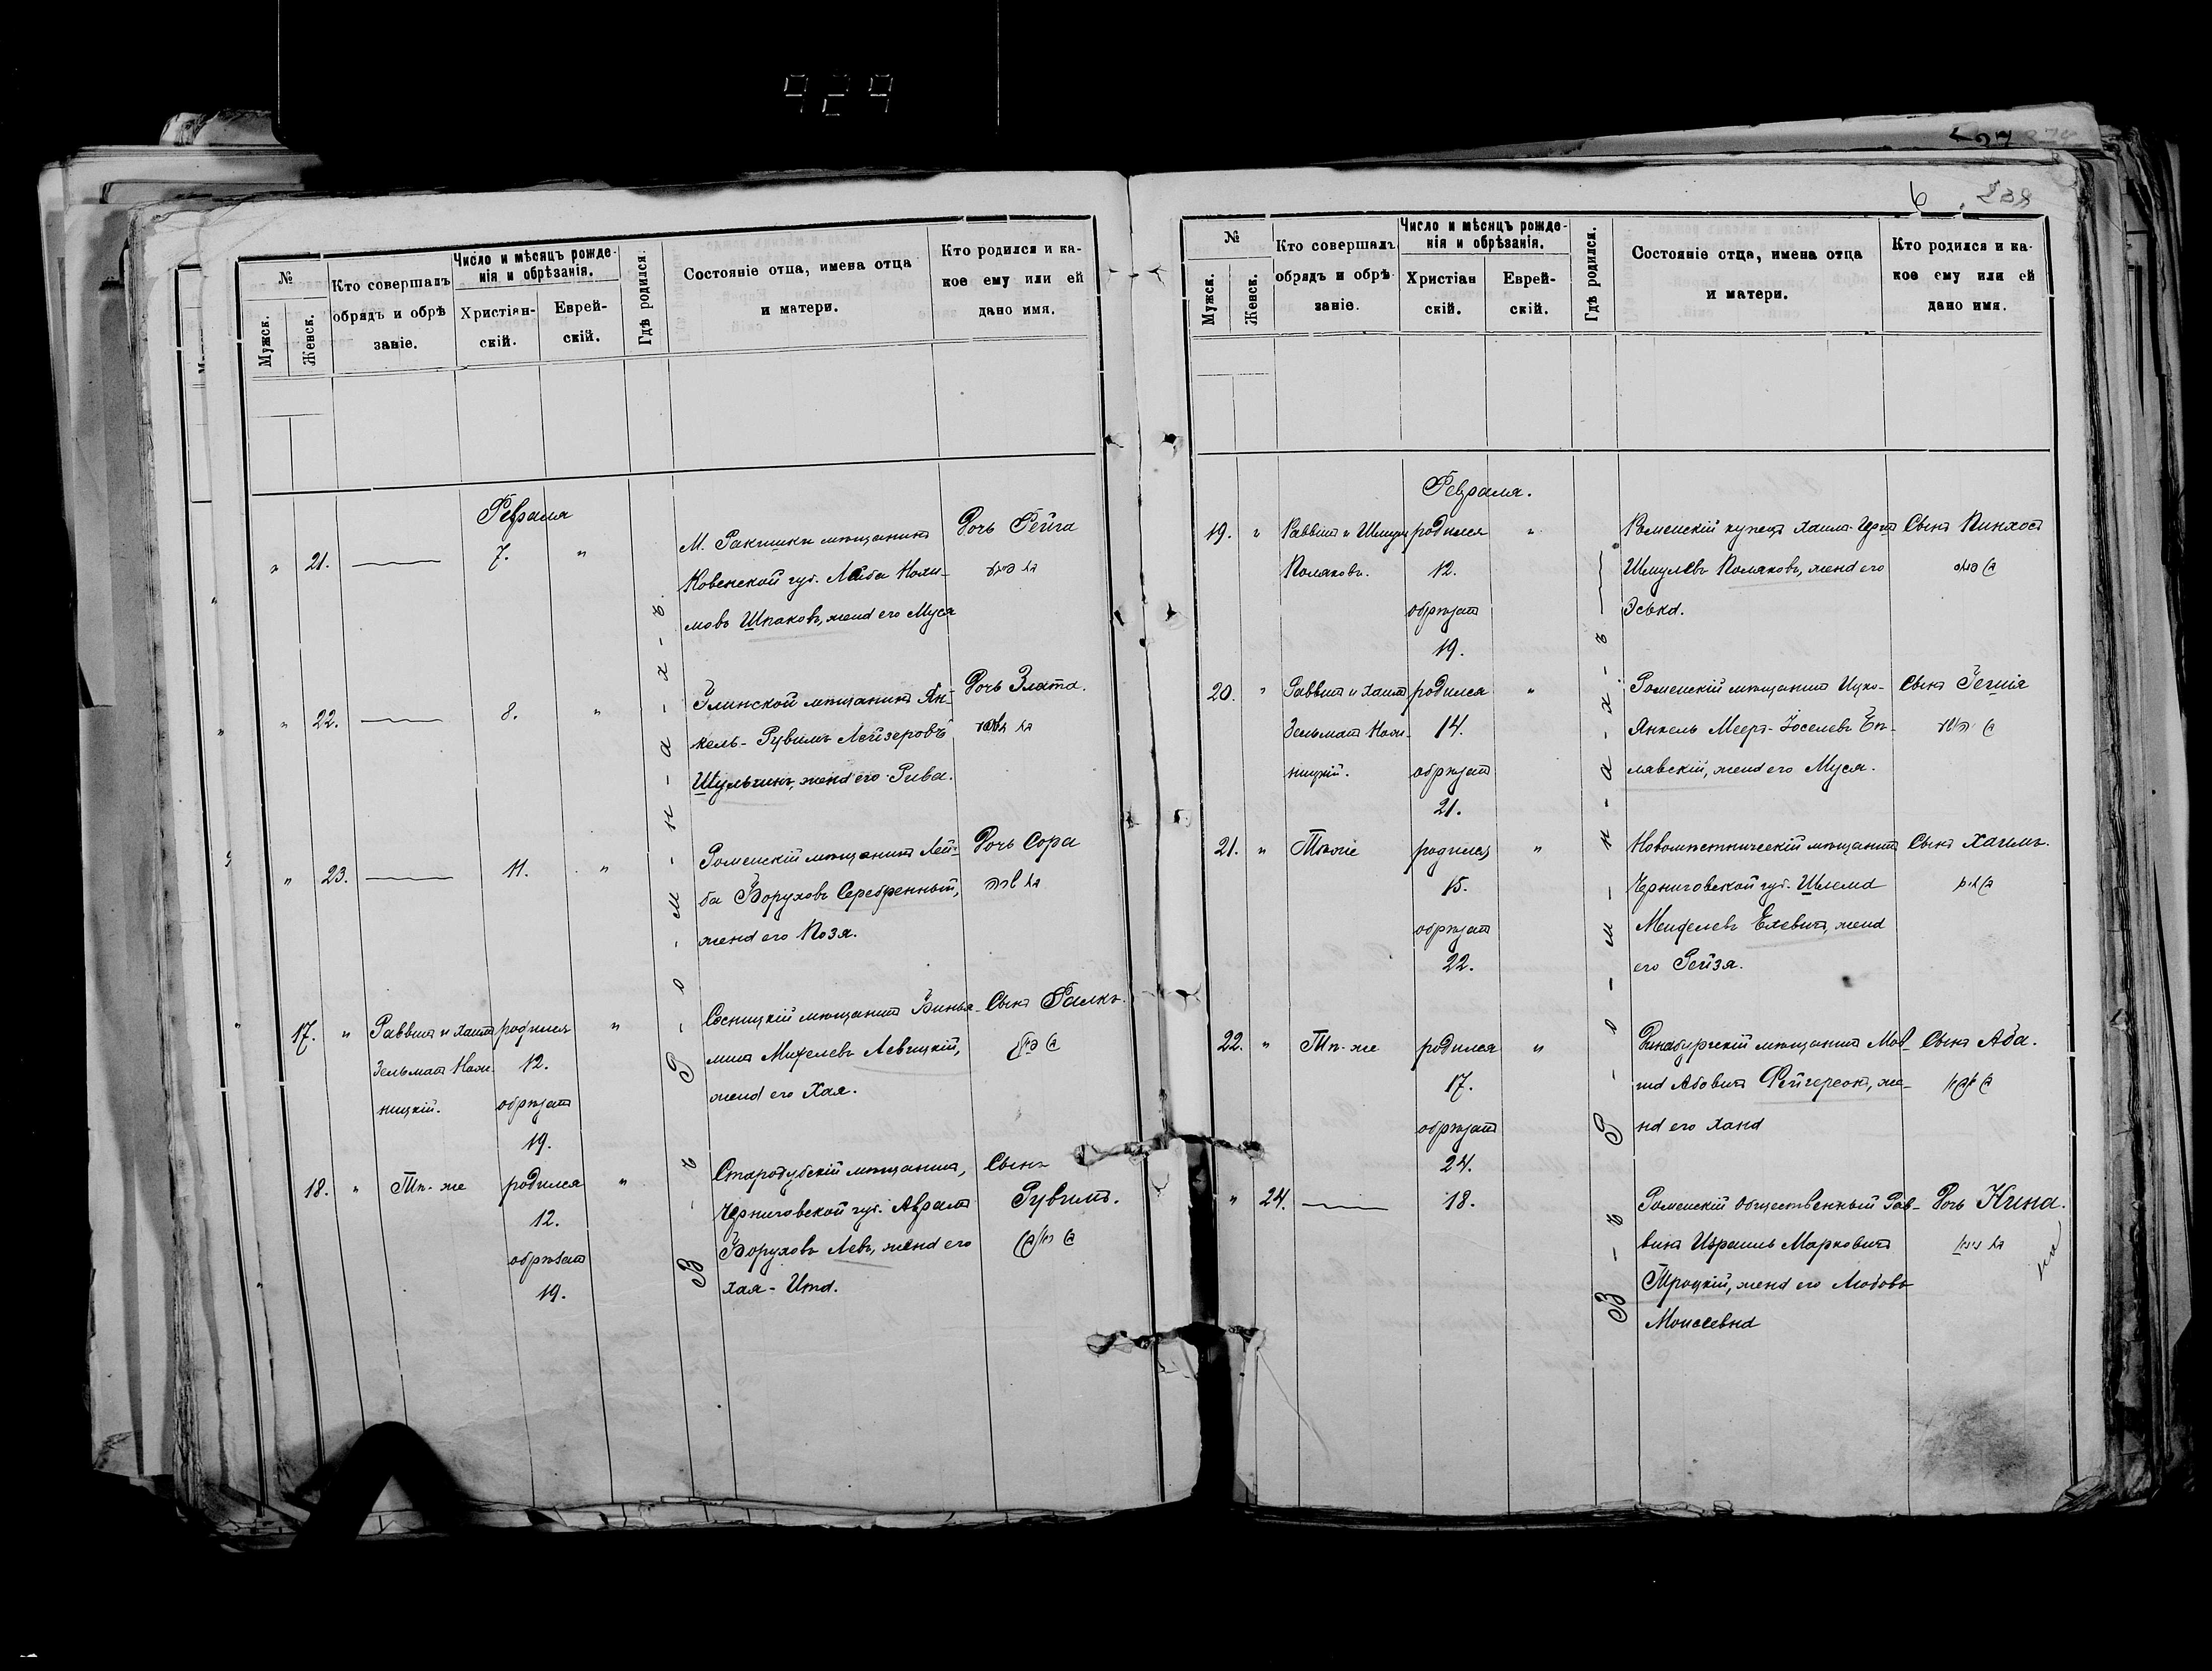 929
№
Мужск.
Женск.
Кто совершалъ
обрядъ и обрѣ
заніе.
Число и мѣсяцъ рожде-
нія и обрѣзанія.
Христіан-
скій.
Еврей-
скій.
Гдѣ родился.
Состояніе отца, имена отца
и матери.
Кто родился и ка-
кое ему или ей
дано имя.
Февраля
" 21. 7. "
М. Ракишки мѣщанинъ
Ковенской губ. Лейба Нохи-
мовъ Шпаковъ, жена его Муся
Дочь Фейга
" 22. 8. "
Глинской мѣщанинъ Ян-
кель-Рувимъ Лейзеровъ
Шульгинъ, жена его Рива.
Дочь Злата.
" 23. 11. "
Роменскій мѣщанинъ Лей-
ба Боруховъ Серебренный,
жена его Позя.
Дочь Сора
17. " Раввинъ и Хаимъ родился "
Зельманъ Нохи- 12.
ницкій. обрѣзанъ
19.
Сосницкій мѣщанинъ Бинья-
минъ Мифелевъ Левицкій,
жена его Хая.
Сынъ Фалкъ.
18. " Тѣ-же родился "
12.
обрѣзанъ
19.
Стародубскій мѣщанинъ,
Черниговской губ. Абрамъ
Боруховъ Левъ, жена его
Хая-Ита.
Сынъ
Рувимъ.
В-ъ Р-о-м-н-а-х-ъ
6
№
Мужск.
Женск.
Кто совершалъ
обрядъ и обрѣ-
заніе.
Число и мѣсяцъ рожде-
нія и обрѣзанія.
Христіан
скій.
Еврей-
скій.
Гдѣ родился.
Состояніе отца, имена отца
и матери.
Кто родился и ка-
кое ему или ей
дано имя.
Февраля.
19. " Раввинъ и Шмуль родился "
Поляковъ. 12.
обрѣзанъ
19.
Роменскій купецъ Хаимъ-Герцъ
Шмулевъ Поляковъ, жена его
Эська.
Сынъ Пинхосъ
20. " Раввинъ и Хаимъ родился "
Зельманъ Нохи- 14.
ницкій. обрѣзанъ
21.
Роменскій мѣщанинъ Ицко-
Янкель Мееръ-Іоселевъ Еп-
лавскій, жена его Муся.
Сынъ
21. " Тѣже родился "
15.
обрѣзанъ
22.
Новомѣстническій мѣщанинъ
Черниговской губ. Шлема
Менделевъ Елевичъ, жена
его Рейзя.
Сынъ Хаимъ.
22. " Тѣ-же родился "
17.
обрѣзанъ
24.
Динабургскій мѣщанинъ Мов-
ша Абовичъ Фейгерсонъ, же-
на его Хана
Сынъ Аба.
" 24. 18.
Роменскій Общественный Рав-
винъ Израиль Марковичъ
Троцкій, жена его Любовь
Моисеевна
Дочь Нина.
В-ъ Р-о-м-н-а-х-ъ